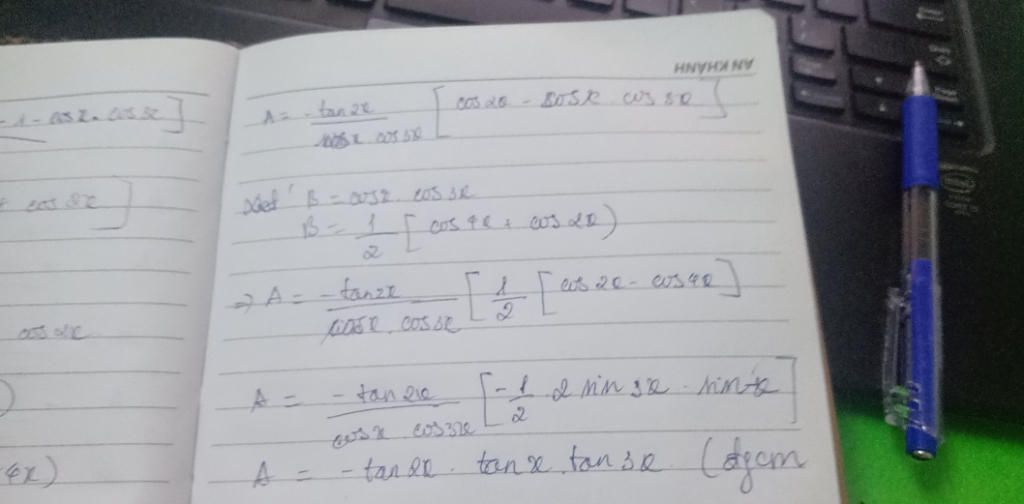 - 1 - cosx. cos3x]
cos2x]
cos2x
4x)
AN KHANH
A = -tan2x / cosx cos3x [cos2x - cosx. cos3x]
Xét B = cosx. cos3x
B = 1/2 [cos4x + cos2x)
=> A = -tan2x / cosx. cos3x [1/2 [cos2x - cos4x]
A = -tan2x / cosx cos3x [-1/2 2 sin3x. sin-x]
A = -tan2x. tanx. tan3x (đpcm